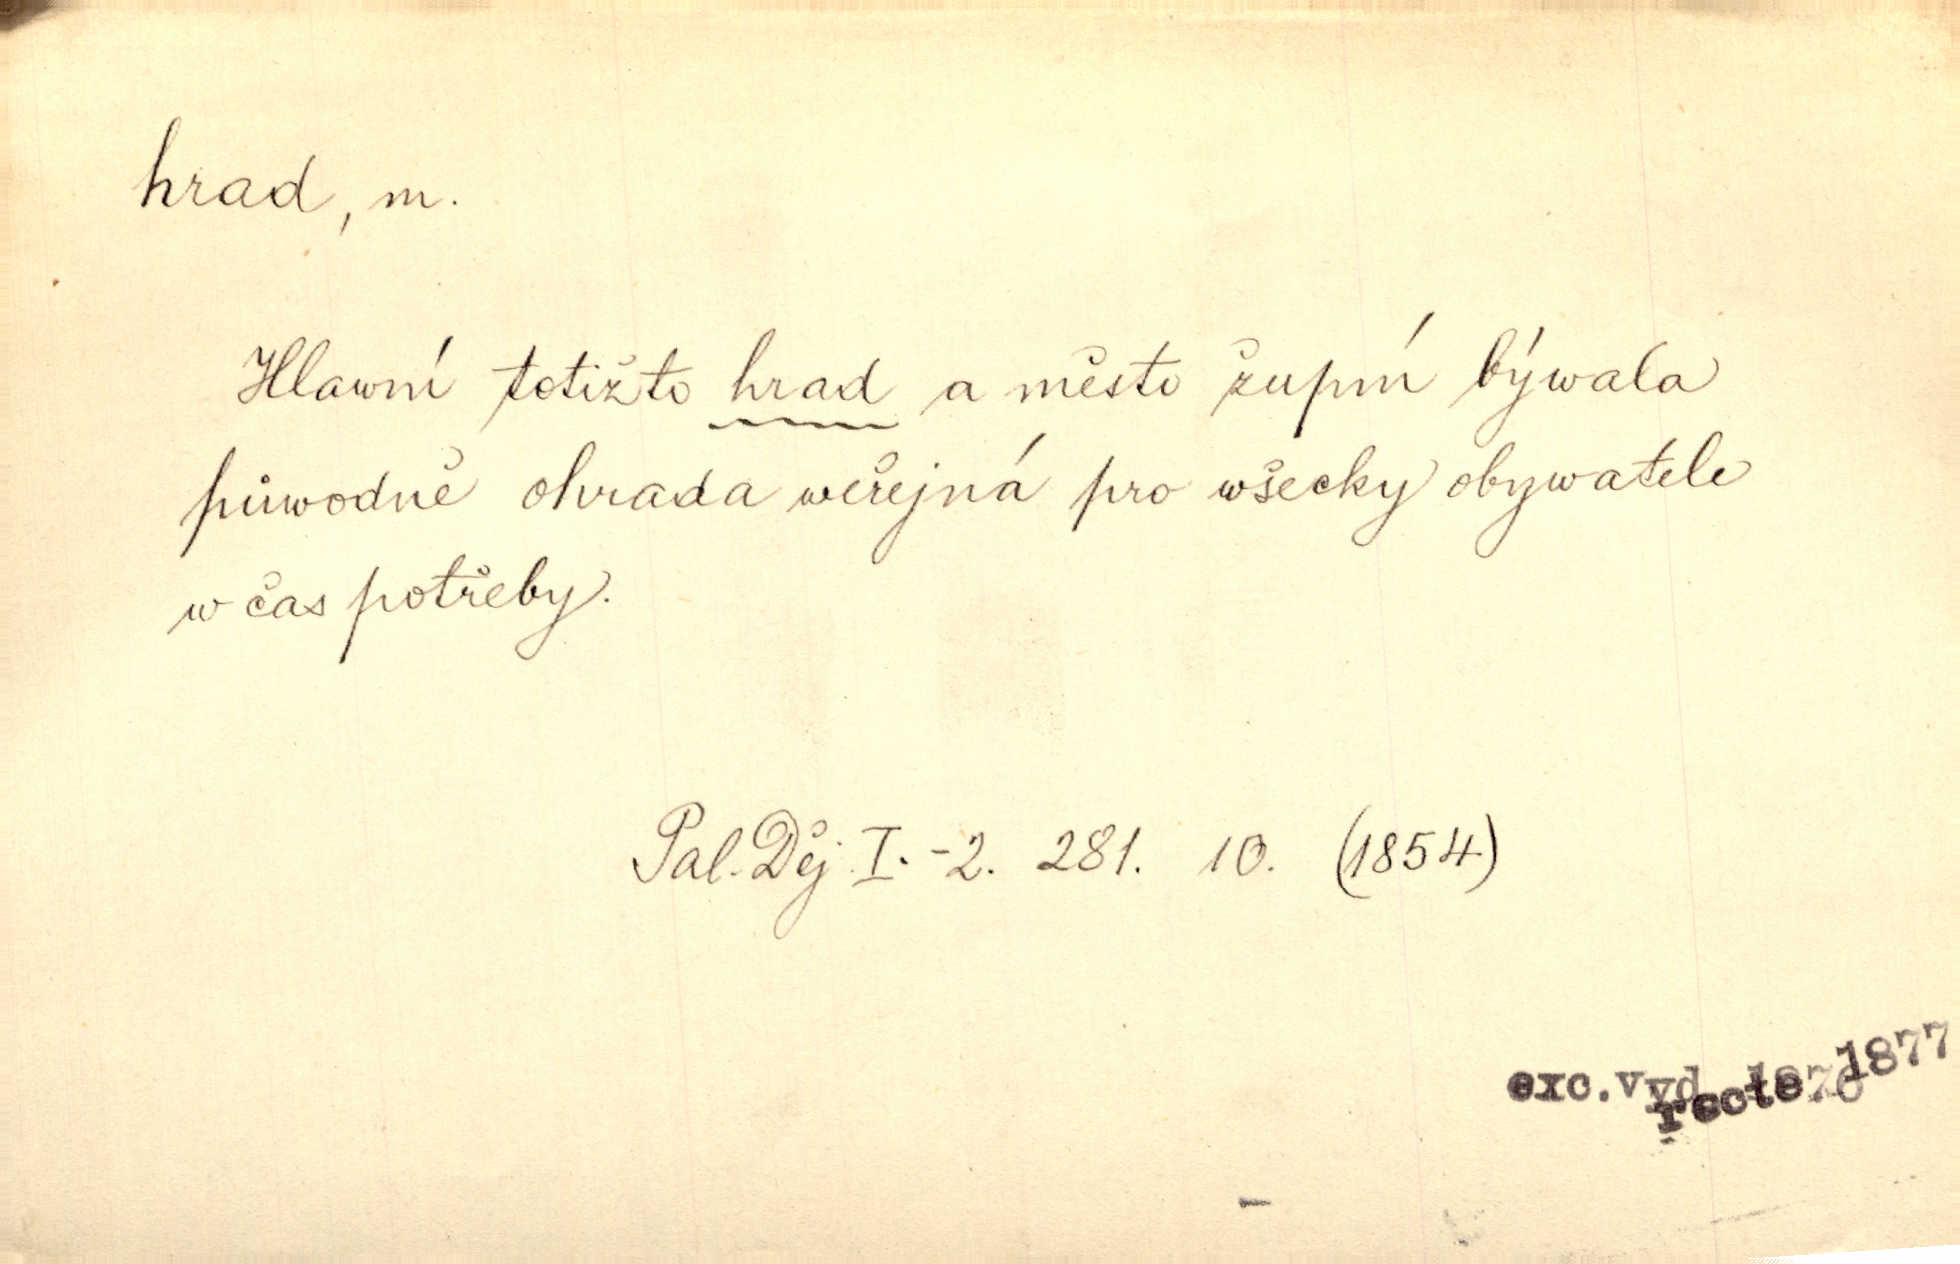 hrad, m.
Hlawní totižto hrad a město župní býwala
půwodně ohrada weřejná pro wšecky obywatele
w čas potřeby.
Pal. Děj. I. -2. 281. 10. (1854)
exc. vyd. 1876
recte 1877